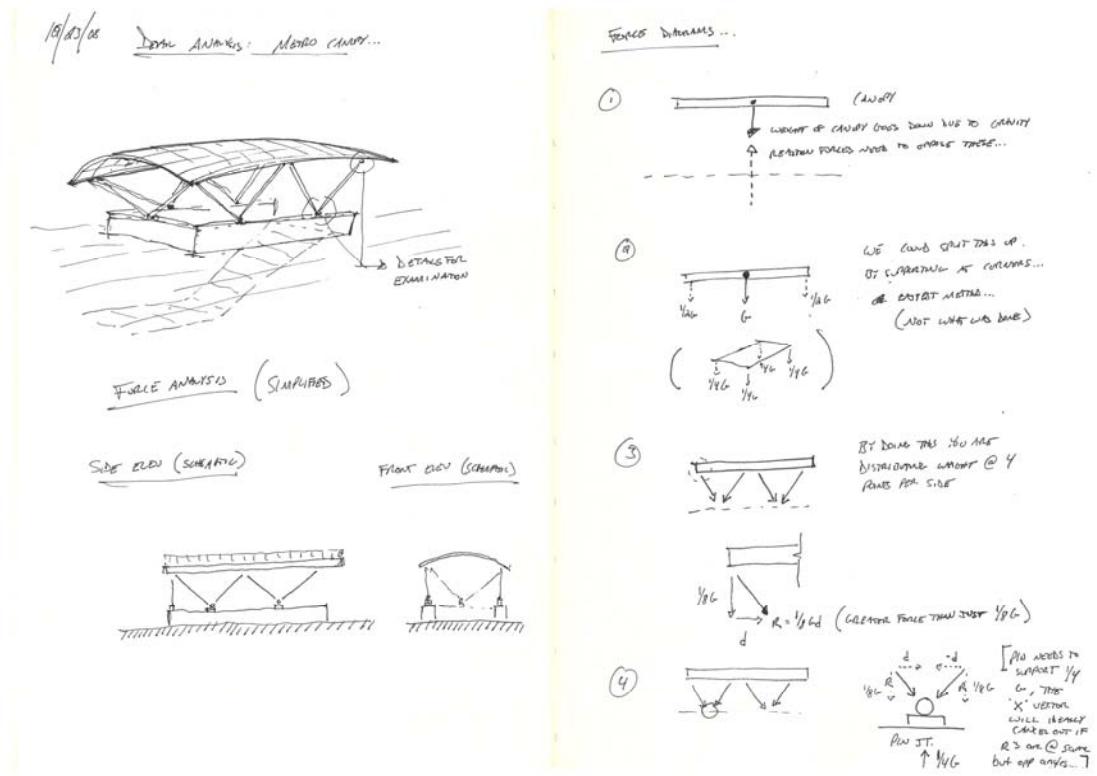 DETAIL ANALYSIS: METRO CANOPY...
DETAILS FOR
EXAMINATION
FORCE ANALYSIS (SIMPLIFIED)
SIDE ELEV (SCHEMATIC)
FRONT ELEV (SCHEMATIC)
FORCE DIAGRAMS...
1
CANOPY
WEIGHT OF CANOPY GOES DOWN DUE TO GRAVITY
REACTION FORCES NEED TO OPPOSE THESE...
2
WE COULD SPLIT THIS UP.
BY SUPPORTING AT CORNERS...
EASIEST METHOD...
(NOT WHAT WAS DONE)
1/2G
G
1/2G
1/4G
1/4G
1/4G
1/4G
3
BY DOING THIS YOU ARE
DISTRIBUTING WEIGHT @ 4
POINTS PER SIDE
1/8G
d
R = 1/8Gd (GREATER FORCE THAN JUST 1/8G)
4
d -d
1/8G R R 1/8G
PIN JT.
↑ 1/4G
[PIN NEEDS TO
SUPPORT 1/4
G, THE
"X" VECTOR
WILL IDEALLY
CANCEL OUT IF
R's are @ same
but opp angles...]